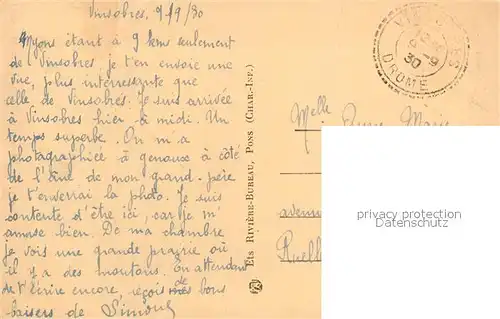 Vinsobres, 9/9/30
Nyons étant à 9 kms seulement
de Vinsobres, je t'en envoie une
vue, plus interressante que
celle de Vinsobres. Je suis arrivée
à Vinsobres hier à midi. Un
temps superbe. On m'a
photographiée à genoux à côté
de l'âne de mon grand-père
je t'enverrai la photo. Je suis
contente d'être ici, car je m'
amuse bien. De ma chambre
je vois une grande prairie où
il y a des moutons. En attendant
de t'écrire encore, reçois de bons
baisers de Simone
Ets RIVIÈRE-BUREAU, PONS (CHAR.-INF.)
9-9
30
DROME
Melle
Marie
avenue
Ruell
privacy protection
watermark